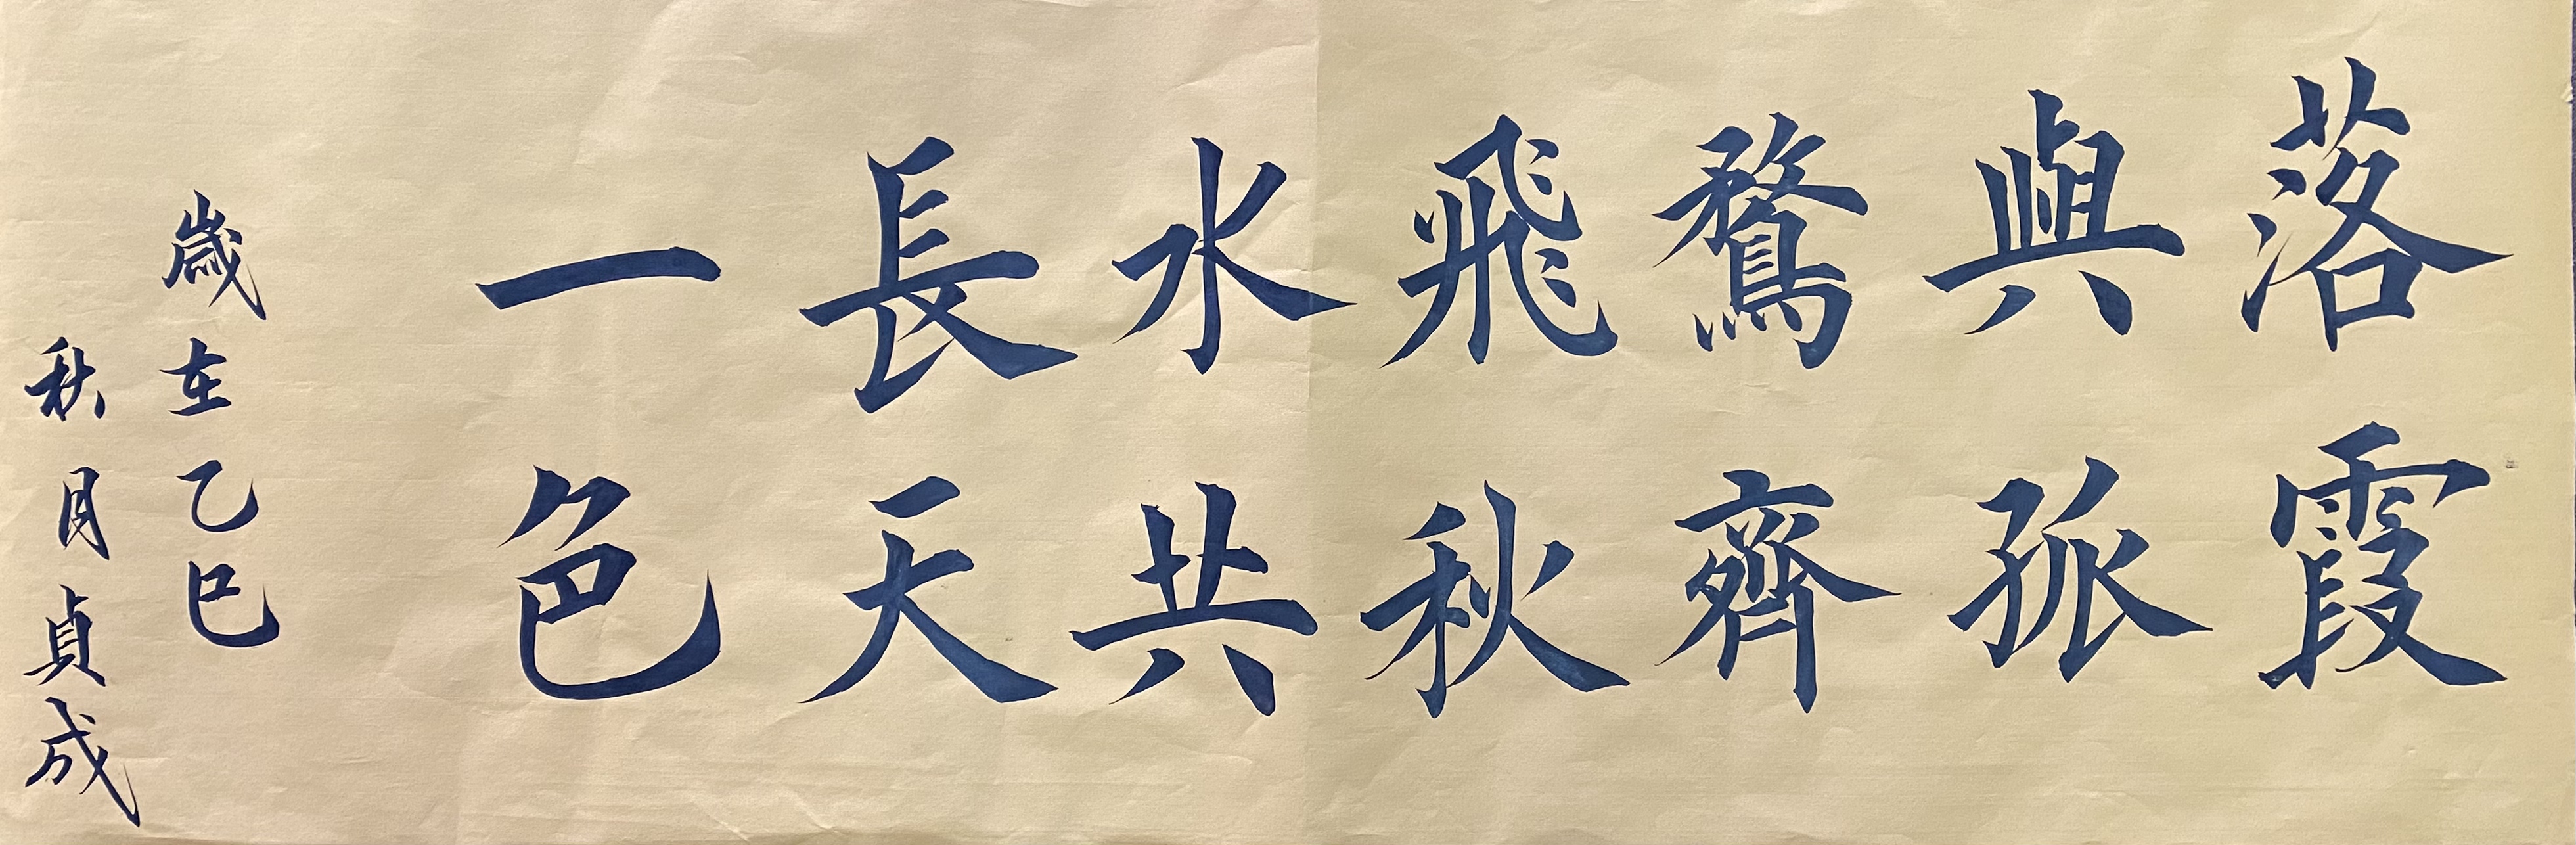 落霞
與孤
鶩齊
飛秋
水共
長天
一色
歲在乙巳
秋月貞成